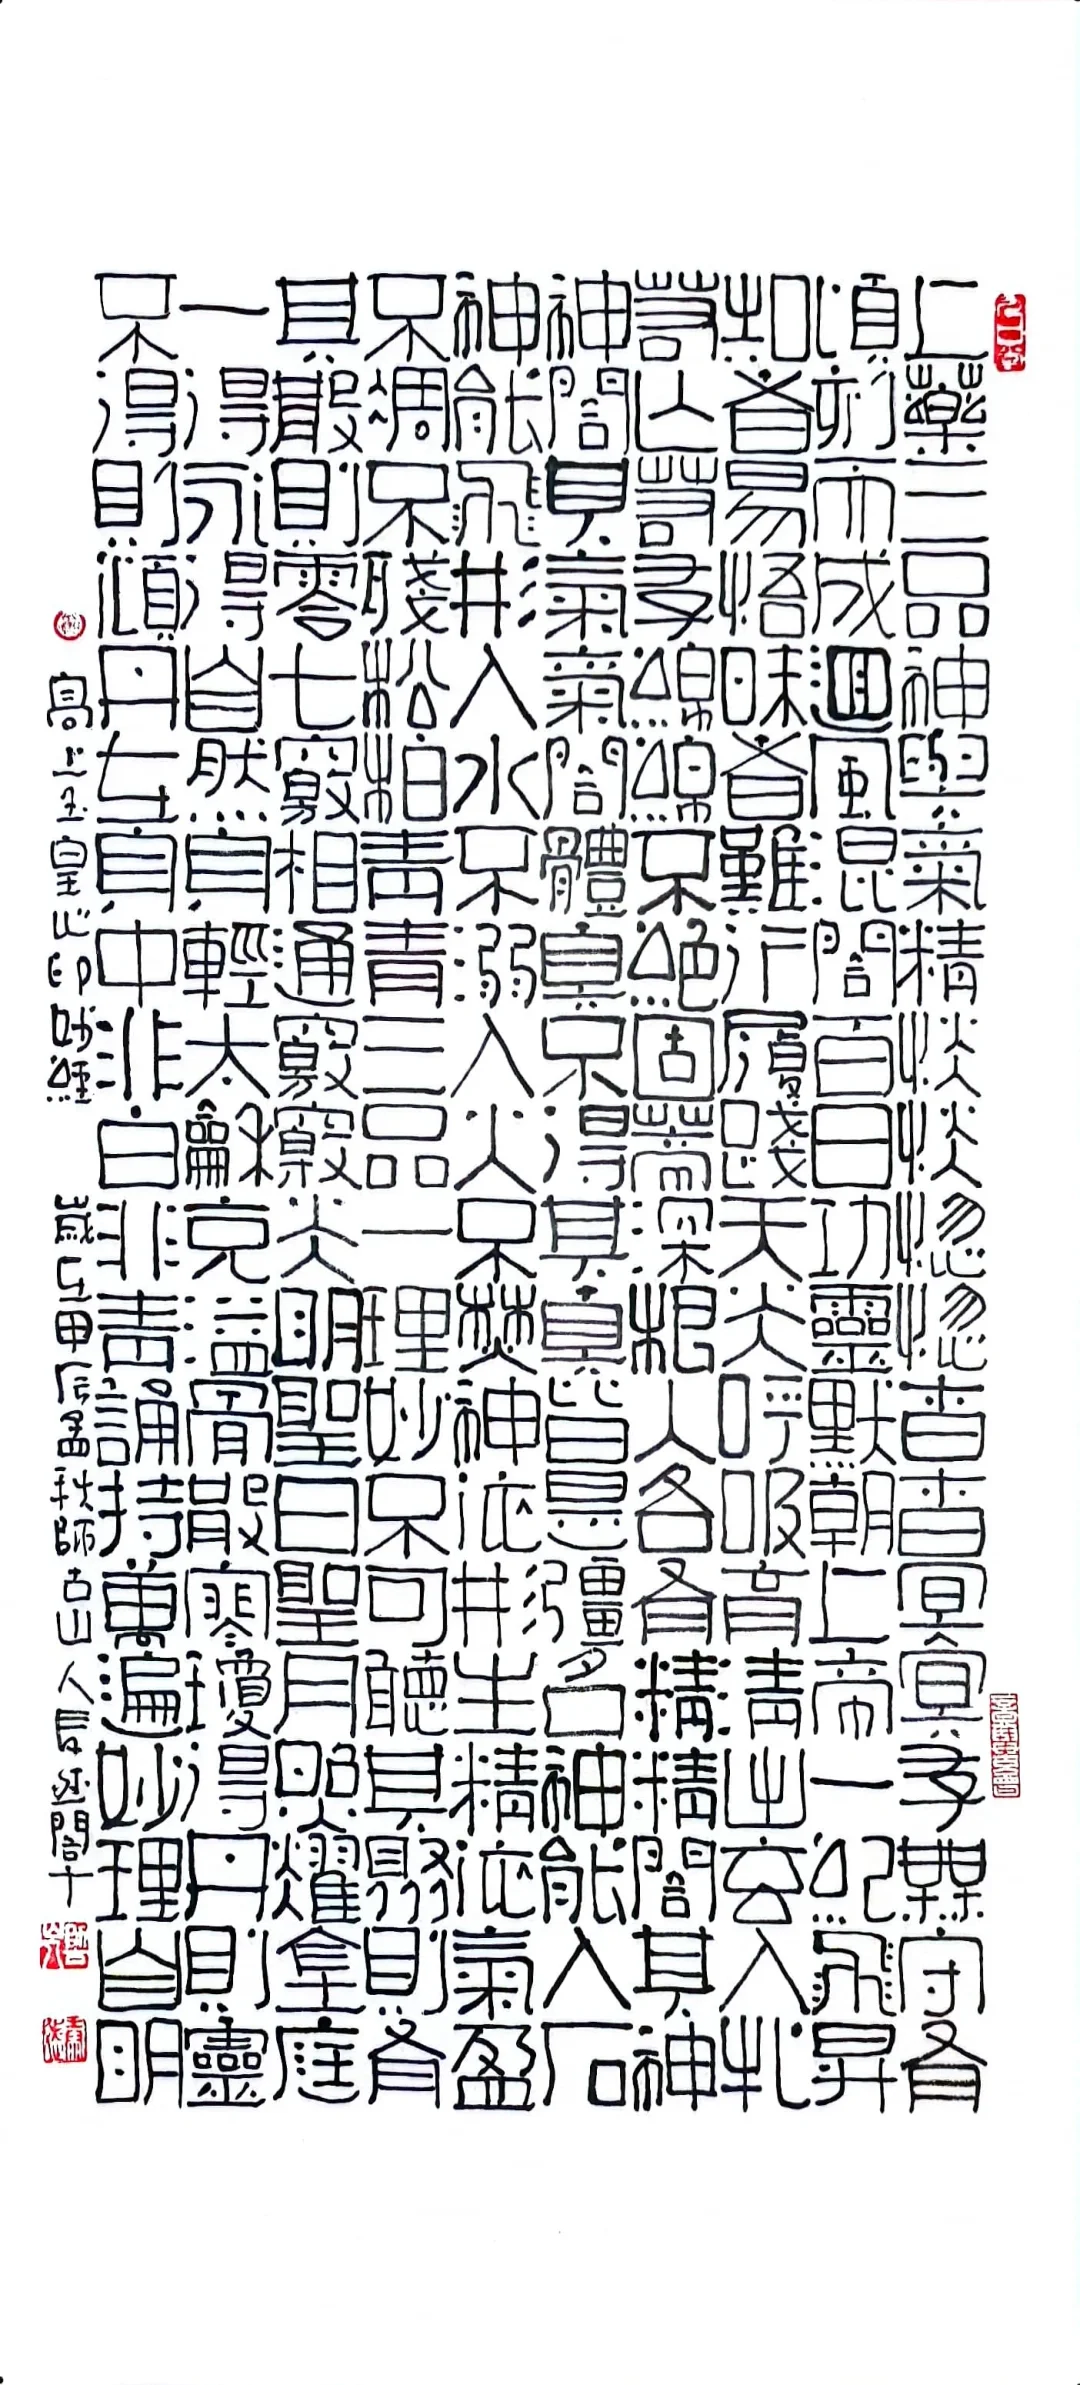 上藥三品神與氣精恍恍惚惚杳杳冥冥存無守有
頃刻而成迴風混合百日功靈默朝上帝一紀飛昇
知者易悟昧者難行履踐天光呼吸育清出玄入牝
若亡若存綿綿不絕固蒂深根人各有精精合其神
神合其氣氣合體真不得其真皆是彊名神能入石
神能飛形入水不溺入火不焚神依形生精依氣盈
不凋不殘松柏青青三品一理妙不可聽其聚則有
其散則零七竅相通竅竅光明聖日聖月照耀金庭
一得永得自然身輕太龢充溢骨散寒瓊得丹則靈
不得則傾丹在身中非白非青誦持萬遍妙理自明
高上玉皇心印妙經 歲在甲辰孟秋師古山人